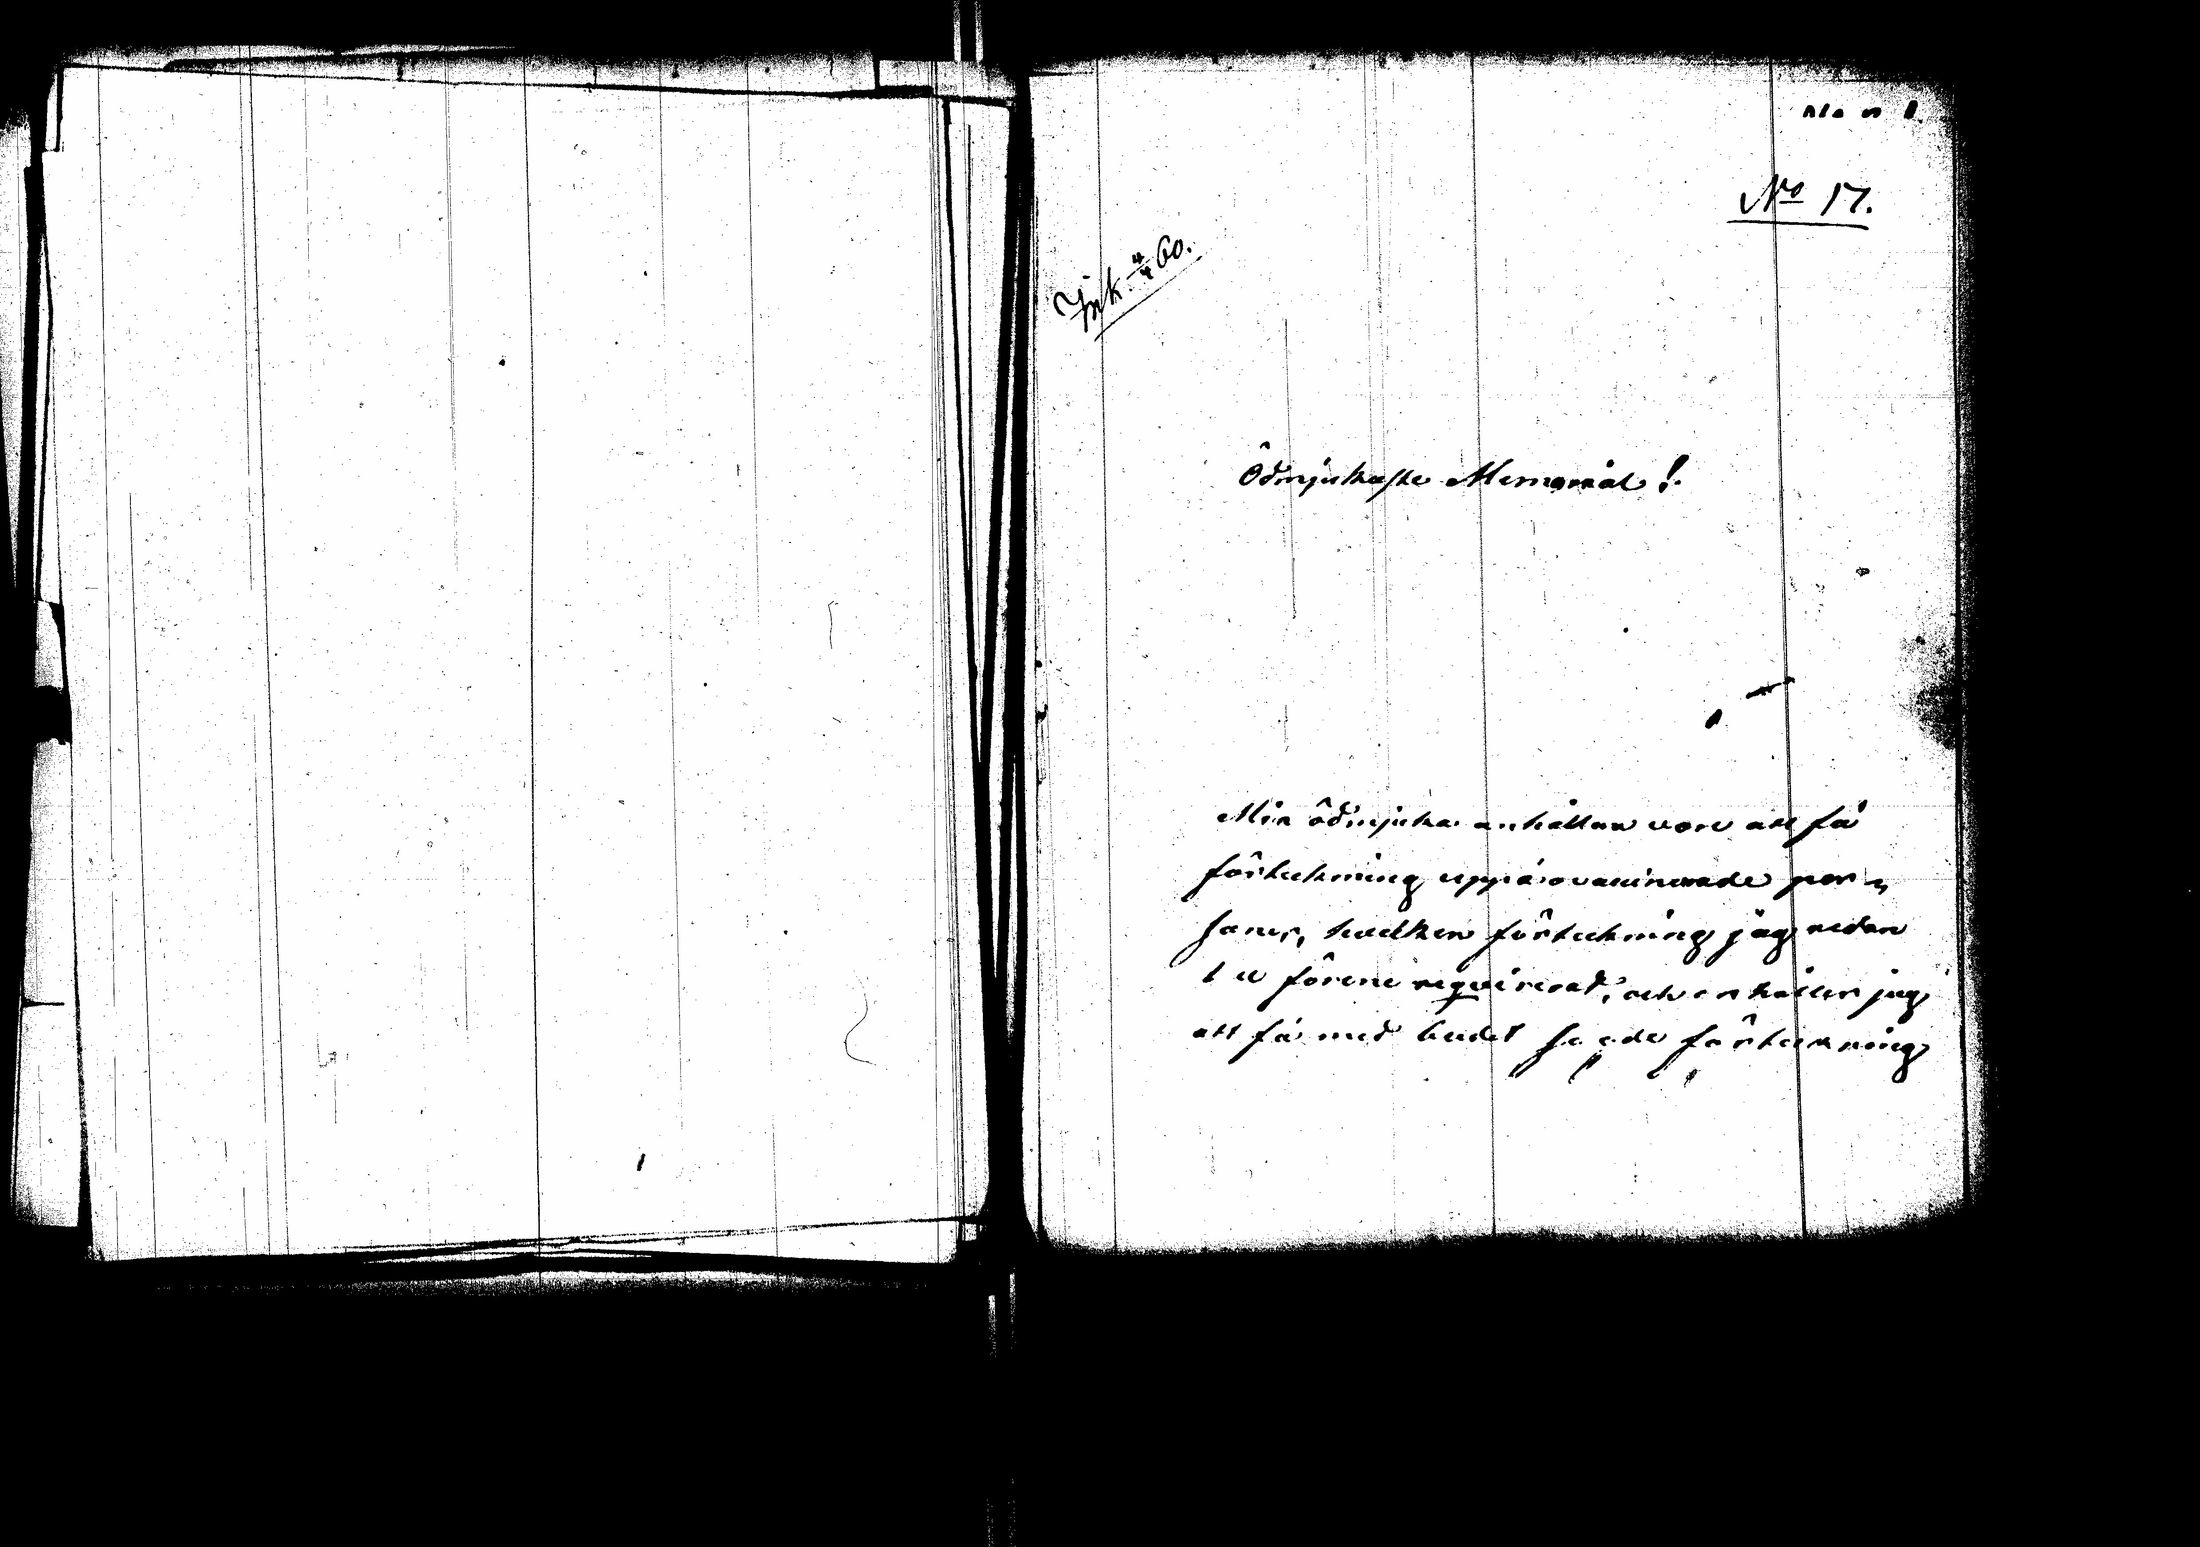 No 17.
Ink. 4/4 60.
Ödmjukaste Memorial!
Min ödmjuka anhållan vore att få
förtekning uppå ovaccinerade per-
soner, hvilken förtekning jag redan
förene requirerat, och anhåller jag
att få med budet förtekning